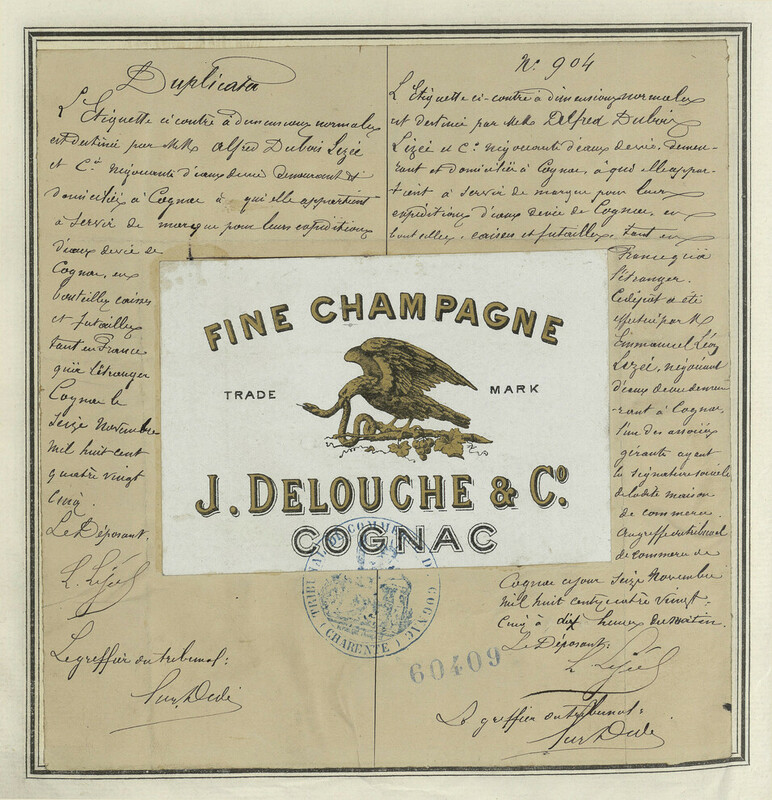 Duplicata
L'Etiquette ci contre à dimensions normales
est destinée par MM. Alfred Dubois Lizée
et Cie négociants d'eaux devie demeurant et
domiciliés à Cognac à qui elle appartient
à servir de marque pour leurs expéditions
d'eaux devie de
Cognac, en
bouteilles caisses
et futailles
tant en France
qu'à l'étranger
Cognac le
Seize Novembre
Mil huit cent
quatre vingt
Cinq.
Le Déposant.
Le greffier du tribunal:
N° 904
L'Etiquette ci-contre à dimensions normales
est destinée par MM. Alfred Dubois
Lizée et Cie négociants d'eaux devie, demeu-
rant et domiciliés à Cognac, à qui elle appar-
tient à servir de marque pour leurs
expéditions d'eaux devie de Cognac, en
bouteilles, caisses et futailles, tant en
France qu'à
l'étranger.
Ce dépôt a été
effectué par M.
Emmanuel Léon
Lizée, négociant
d'eaux devie demeu-
rant à Cognac,
l'un des associés
gérants ayant
la signature sociale
de ladite maison
de commerce.
Au greffe du tribunal
de commerce de
Cognac ce jour Seize Novembre
Mil huit cent quatre vingt.
Cinq à dix heures du matin.
Le Déposant:
Le greffier du tribunal:
FINE CHAMPAGNE
TRADE MARK
J. DELOUCHE & Co.
COGNAC
TRIBUNAL DE COMMERCE DE COGNAC
(CHARENTE)
60409